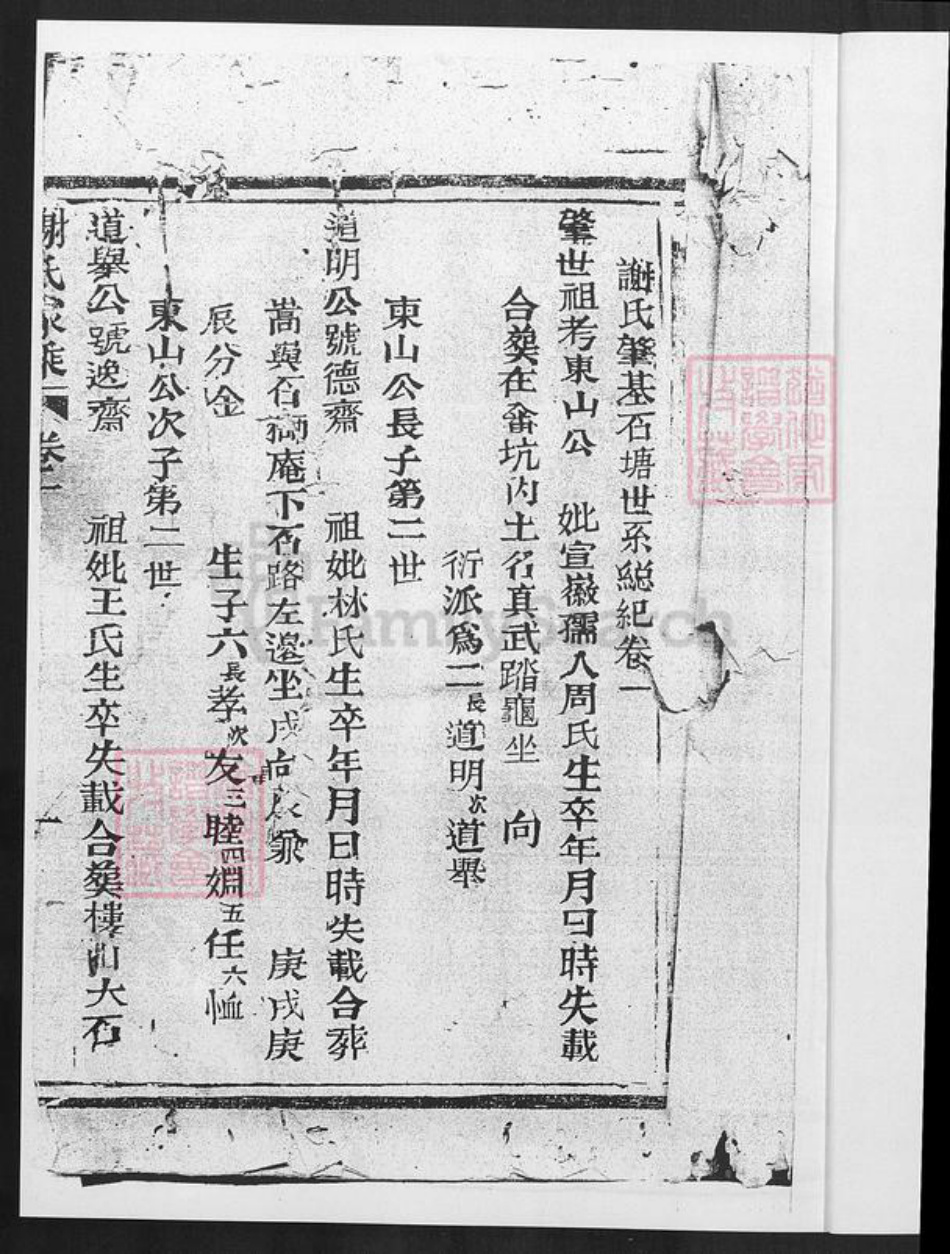 謝氏肇基石塘世系總紀卷一
肇世祖考東山公 妣宣徽孺人周氏生卒年月日時失載
合葬在畬坑內土名真武踏龜坐 向
衍派為二長道明次道舉
東山公長子第二世
道明公號德齋 祖妣林氏生卒年月日時失載合葬
嵩與石獅庵下石路左邊坐戌向辰兼 庚戌庚
辰分金 生子六長孝次友三睦四婣五任六恤
東山公次子第二世
道舉公號逸齋 祖妣王氏生卒失載合葬樓山大石
謝氏家乘 卷一 一
FamilySearch